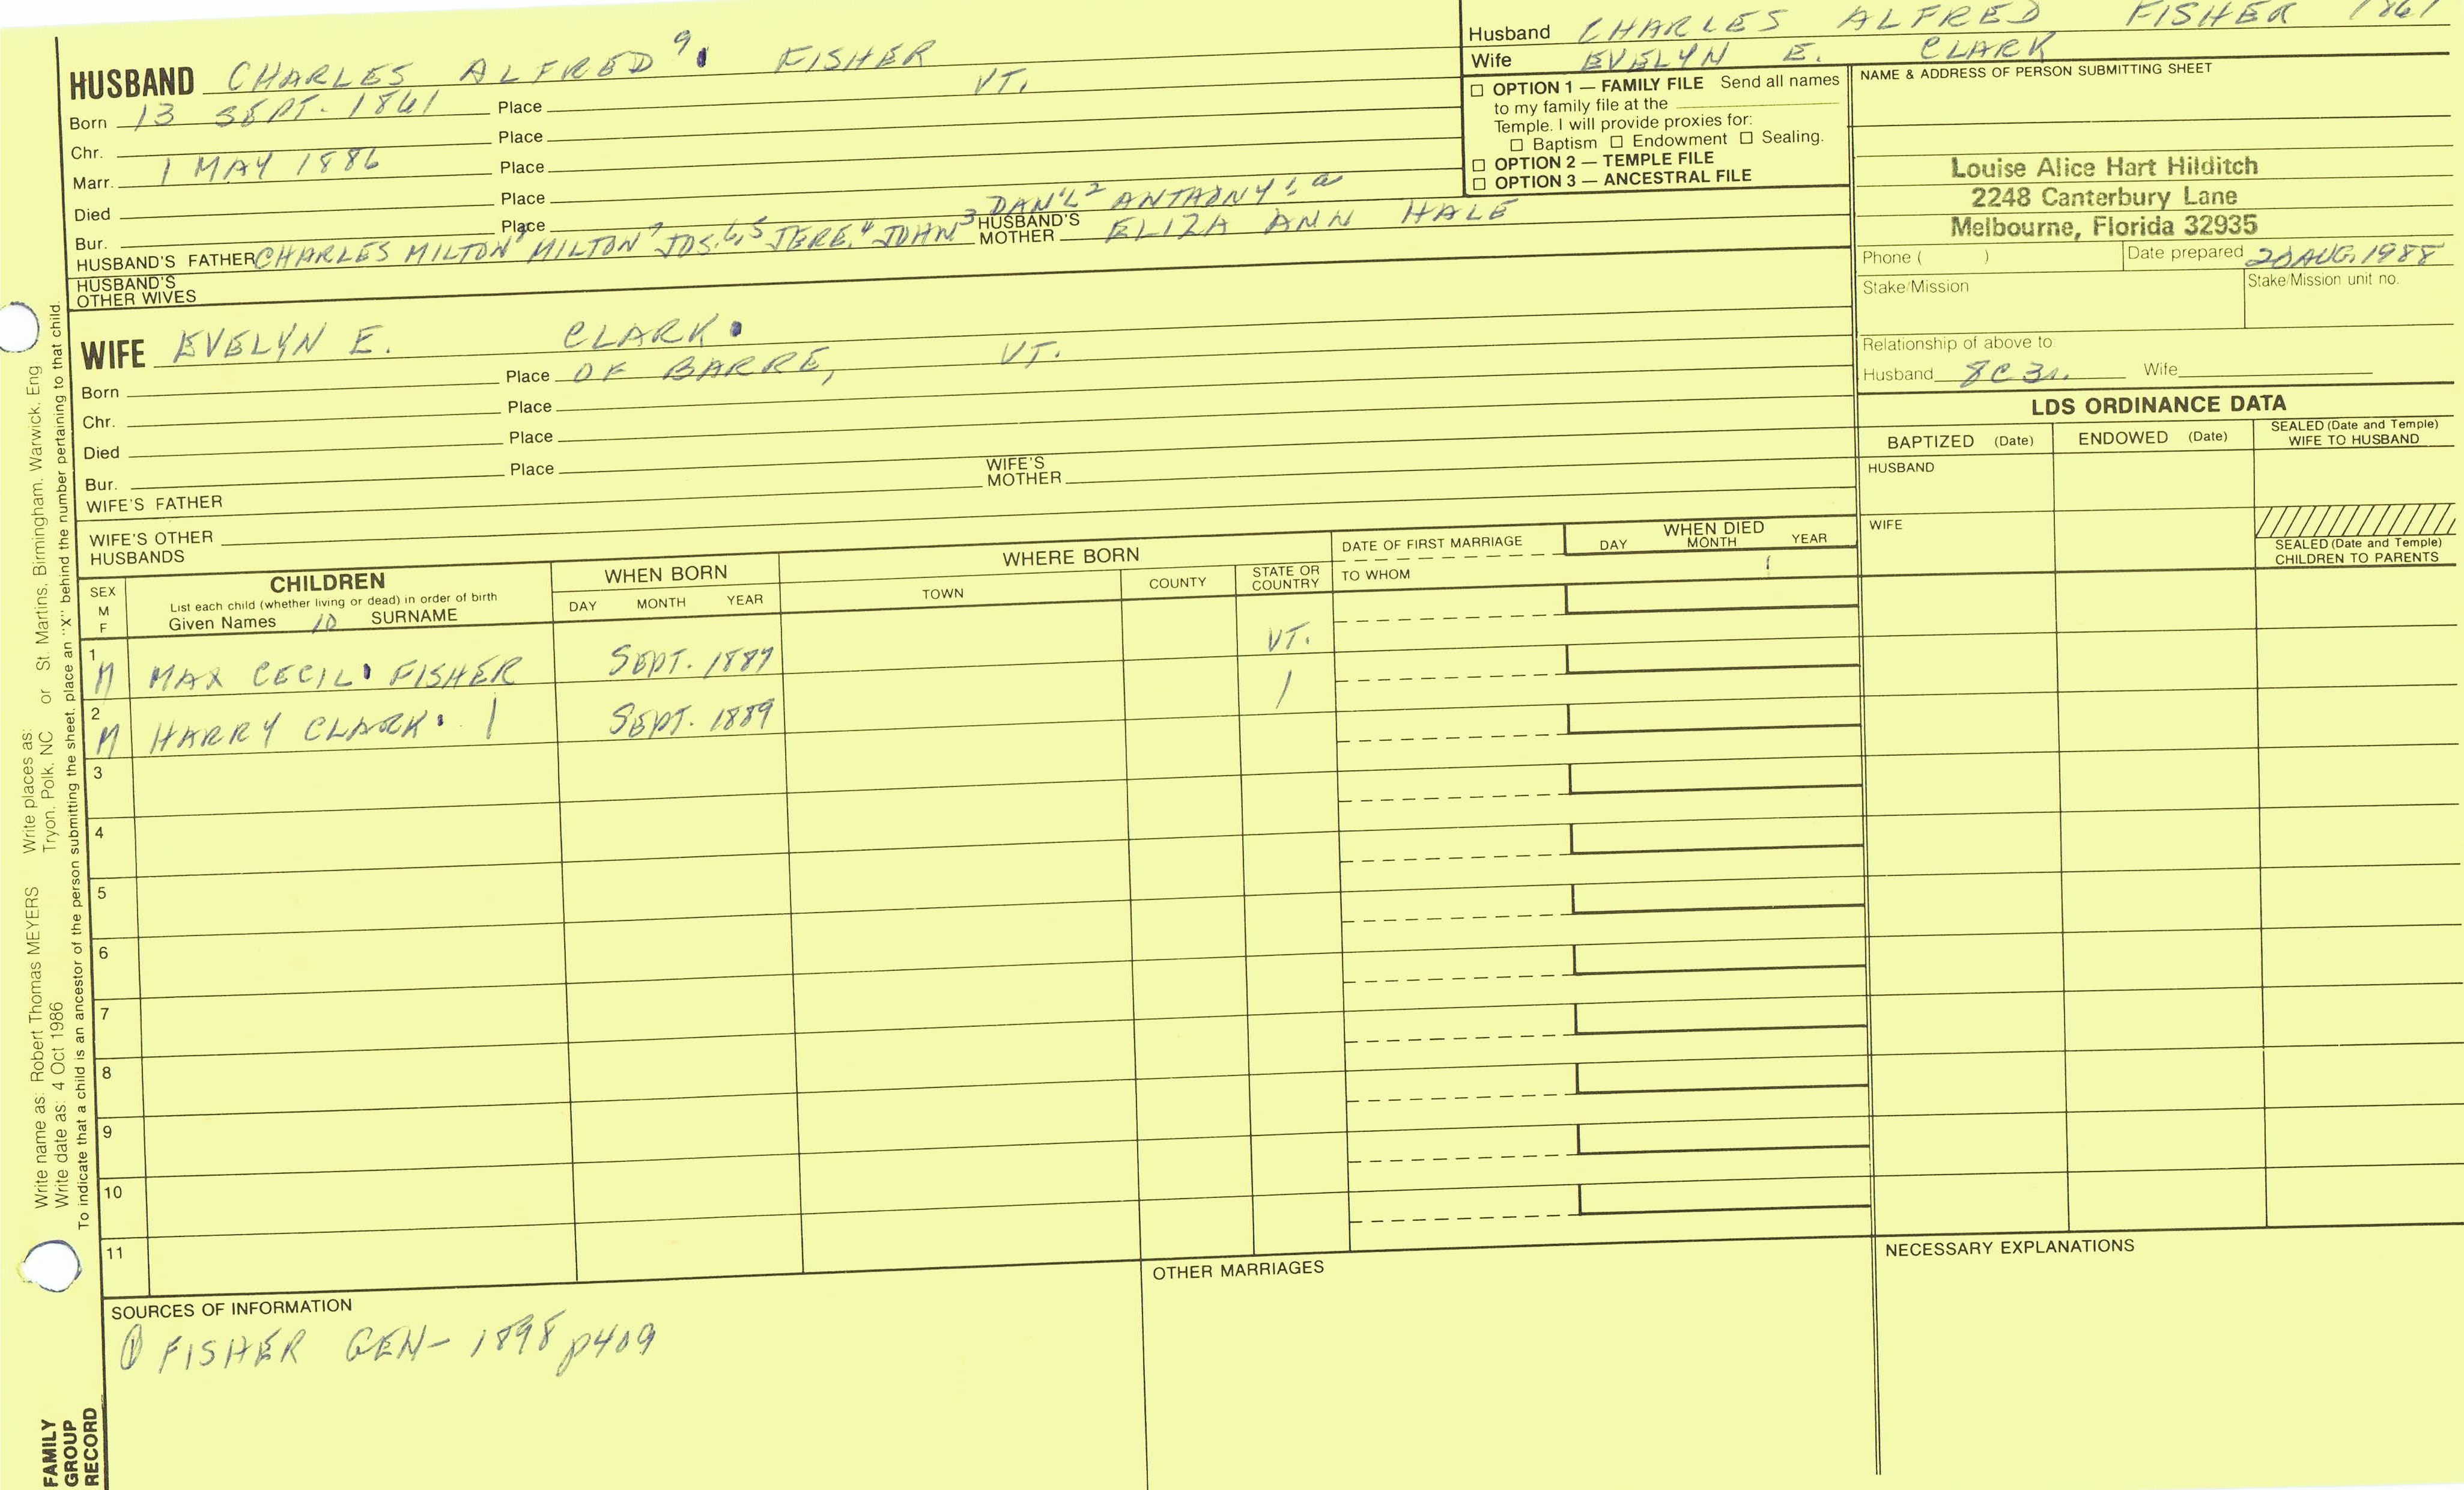 Husband CHARLES ALFRED FISHER 1861
Wife EVELYN E. CLARK
HUSBAND CHARLES ALFRED 9 FISHER
Born 13 SEPT. 1861 Place VT.
Chr. Place
Marr. 1 MAY 1886 Place
Died Place
Bur. Place
HUSBAND'S FATHER CHARLES MILTON 8 MILTON 7 JOS. 6,5 JERE. 4 JOHN 3 DAN'L 2 ANTHONY 1, a
HUSBAND'S MOTHER ELIZA ANN HALE
HUSBAND'S OTHER WIVES
☐ OPTION 1 — FAMILY FILE Send all names
to my family file at the
Temple. I will provide proxies for:
☐ Baptism ☐ Endowment ☐ Sealing.
☐ OPTION 2 — TEMPLE FILE
☐ OPTION 3 — ANCESTRAL FILE
NAME & ADDRESS OF PERSON SUBMITTING SHEET
Louise Alice Hart Hilditch
2248 Canterbury Lane
Melbourne, Florida 32935
Phone ( ) Date prepared 20 AUG. 1988
Stake/Mission Stake/Mission unit no.
Relationship of above to
Husband 8C 3r. Wife
WIFE EVELYN E. CLARK
Born Place OF BARRE, VT.
Chr. Place
Died Place
Bur. Place
WIFE'S FATHER
WIFE'S MOTHER
WIFE'S OTHER HUSBANDS
LDS ORDINANCE DATA
BAPTIZED (Date) ENDOWED (Date) SEALED (Date and Temple) WIFE TO HUSBAND
HUSBAND
WIFE
SEALED (Date and Temple) CHILDREN TO PARENTS
SEX M F
CHILDREN
List each child (whether living or dead) in order of birth
Given Names 10 SURNAME
WHEN BORN
DAY MONTH YEAR
WHERE BORN
TOWN COUNTY STATE OR COUNTRY
DATE OF FIRST MARRIAGE
TO WHOM
WHEN DIED
DAY MONTH YEAR
1 M MAX CECIL FISHER SEPT. 1887 VT.
2 M HARRY CLARK | SEPT. 1889 |
3
4
5
6
7
8
9
10
11
SOURCES OF INFORMATION
① FISHER GEN- 1898 p409
OTHER MARRIAGES
NECESSARY EXPLANATIONS
Write name as: Robert Thomas MEYERS Write places as: or St. Martins, Birmingham, Warwick, Eng
Write date as: 4 Oct 1986 Tryon, Polk, NC
To indicate that a child is an ancestor of the person submitting the sheet, place an "X" behind the number pertaining to that child.
FAMILY
GROUP
RECORD